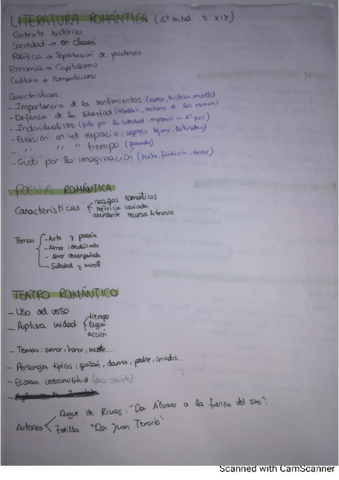 LITERATURA ROMÁNTICA (1ª mitad s. XIX)
Contexto histórico
Sociedad → en clases
Política → Separación de poderes
Economía → Capitalismo
Cultura → Romanticismo
Características:
- Importancia de los sentimientos (amor, tristeza, muerte)
- Defensa de la libertad (rebelión, rechazo de las normas)
- Individualismo (gusto por la soledad, expresión en 1ª pers)
- Evasión en el espacio (lugares lejanos,
- " " " tiempo (pasado)
- Gusto por la imaginación (
POESÍA ROMÁNTICA
Características rasgos temáticos
métrica variada
abundante recursos literarios
Temas - Arte y poesía
- Amor idealizado
- Amor desengañado
- Soledad y muerte
TEATRO ROMÁNTICO
- Uso del verso
- Ruptura unidad tiempo
lugar
acción
- Temas: amor, honor, muerte...
- Personajes típicos: galán, dama, padre, criados...
- Escasa verosimilitud (poco creíble)
Autores Duque de Rivas: "Don Álvaro o la fuerza del sino".
Zorrilla "Don Juan Tenorio"
Scanned with CamScanner